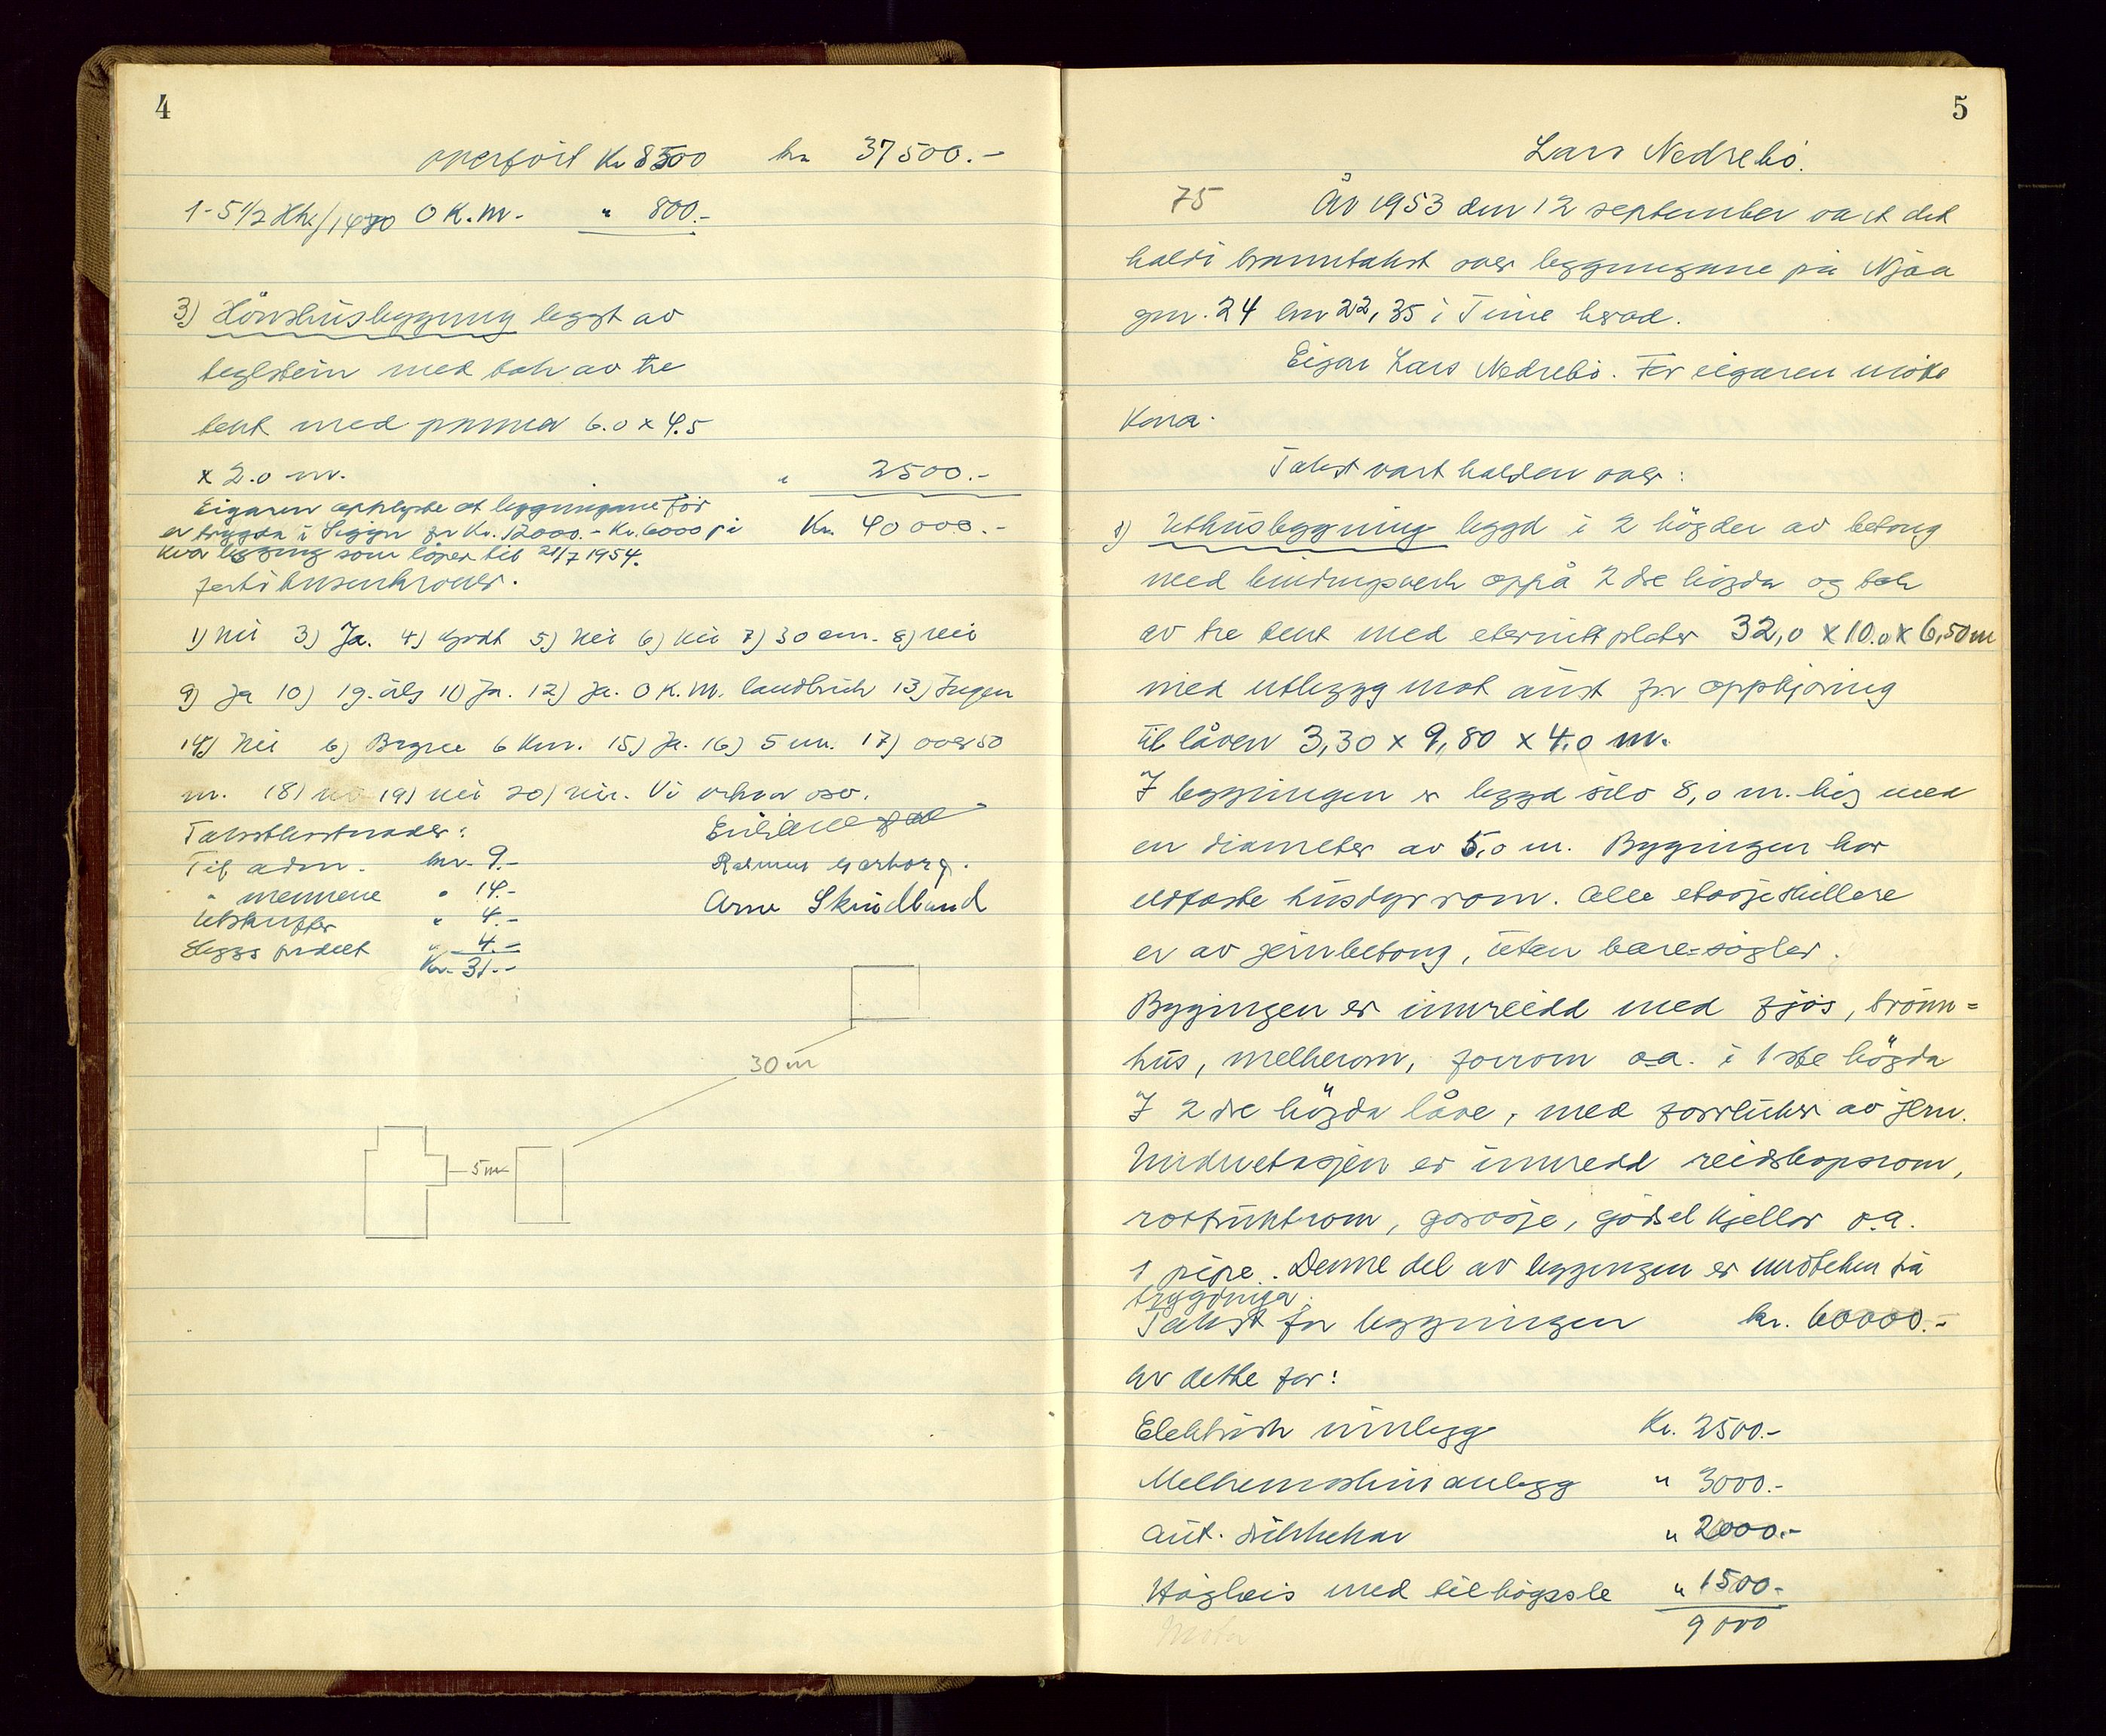 4
overfört Kr 8500 kr 37500.-
1-5 1/2 Hk/1420 O K.M. " 800.-
3) Hönshusbygging bygt av
teglstein med tak av tre
tekt med panner 6.0 x 4.5
x 2.0 m. " 2500.-
Eigaren opplyste at byggningane för
er trygda i Sigyn for Kr. 12000.- Kr. 6000 på
kvar bygging som löper til 21/7 1954.
Kr. 40000.-
førti tusenkroner.
1) Nei 3) Ja. 4) Godt 5) Nei 6) Nei 7) 30 cm. 8) Nei
9) Ja 10) 19. 11) Ja. 12) Ja. O K.M. landbruk 13) Ingen
14) Nei b) Bryne 6 km. 15) Ja. 16) 5 m. 17) over 50
m. 18) nei 19) nei 20) Nei. Vi
Takstkostnader:
Til adm. kr. 9.-
" mennene " 14.-
Utskrifter " 4.-
" 4.-
Kr. 31.-
Rasmus Garborg.
Arne Skindlund
30 m
5 m
5
Lars Nedrebö.
75 År 1953 den 12 september vart det
haldi branntakst over byggningane på Njåa
gnr. 24 bnr 22, 35 i Time herad.
Eigar Lars Nedrebö. For eigaren möte
Kona.
Takst vart halden over:
1) Uthusbyggning byggd i 2 högder av betong
med bindingsverk oppå 2dre högda og tak
av tre tekt med eternittplater 32,0 x 10.0 x 6,50 m
med utbygg mot aust for oppkjöring
til låven 3,30 x 9,80 x 4.0 m.
I byggningen er byggd silo 8,0 m. hög med
en diameter av 5,0 m. Bygingen har
eldfaste husdyrrom. Alle etasjeskillere
er av jernbetong, utan bære=sögler.
Bygingen er innreidd med fjös, trönn=
hus, melkerom, forrom o.a. i 1ste högda
I 2dre högda låve, med forrluker av jern.
Undretasjen er innredd reidskapsrom,
rotfruktrom, garasje, gödselkjellar o.a.
1 pipe. Denne del av byggningen er undteken frå
trygdinga.
Takst for byggningen kr. 60000.-
Av dette for:
Elektrisk innlegg Kr. 2500.-
Melkemaskinanlegg " 3000.-
Aut. drikkekar " 2000.-
Högheis med tilhögsle " 1500.-
9000
Motor